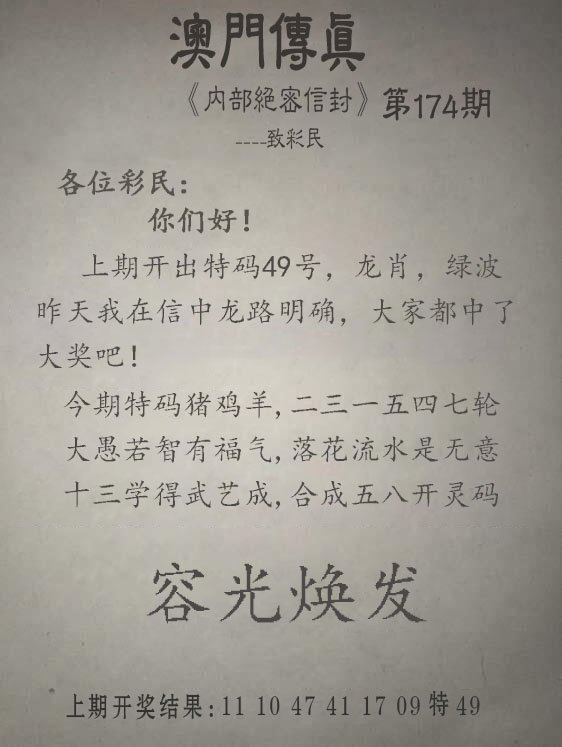 澳門傳眞
《内部絕密信封》第174期
----致彩民
各位彩民:
你们好!
上期开出特码49号，龙肖，绿波
昨天我在信中龙路明确，大家都中了
大奖吧!
今期特码猪鸡羊,二三一五四七轮
大愚若智有福气,落花流水是无意
十三学得武艺成,合成五八开灵码
容光焕发
上期开奖结果:11 10 47 41 17 09特49